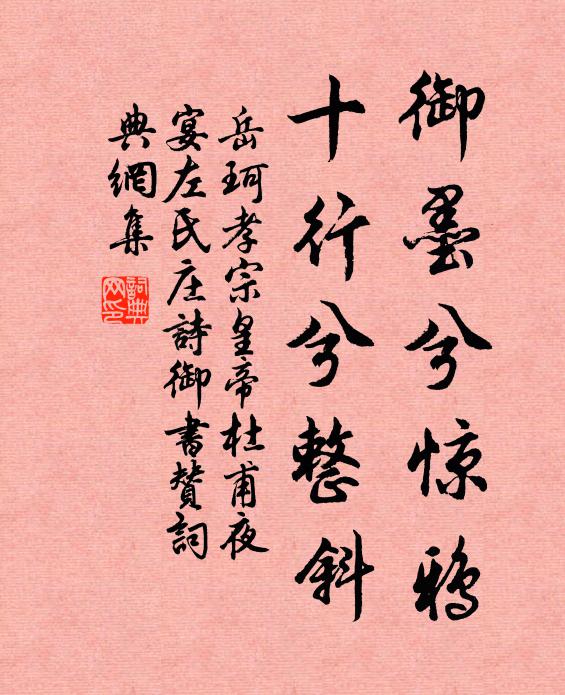 御墨兮惊鸦
十行兮整斜
岳珂孝宗皇帝杜甫夜
宴左氏庄詩御書赞詞
典網集
詞典网印